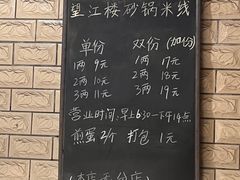 望江楼砂锅米线
单份 双份(加份)
1两 9元 1两 17元
2两 10元 2两 18元
3两 11元 3两 19元
营业时间:早上6:30一下午14点
煎蛋2个 打包 1元
(本店无分店)